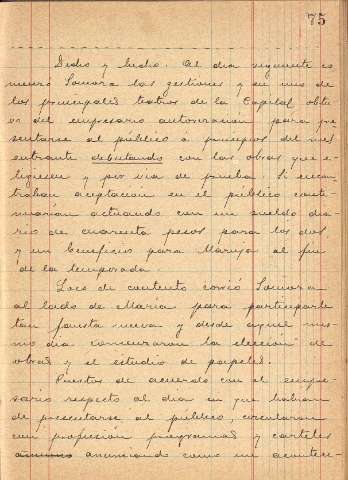 75
Dicho y hecho. Al dia siguiente co
menzó Zamora las gestiones y en uno de
los principales teatros de la Capital obtu
vo del empresario autorización para pre
sentarse al público a principios del mes
entrante debutando con las obras que e-
ligiesen y por via de prueba. Si encon
traban aceptación en el público conti-
nuarían actuando con un sueldo dia
rio de cuarenta pesos para los dos
y un Beneficio para Maruja al fin
de la temporada.
Loco de contento corrió Zamora
al lado de María para participarle
tan fausta nueva y desde aquel mis-
mo dia comenzaron la elección de
obras y el estudio de papeles.
Puestos de acuerdo con el empre-
sario respecto al dia en que habian
de presentarse al público, circularon
con profusión programas y carteles
anunciando como un aconteci-